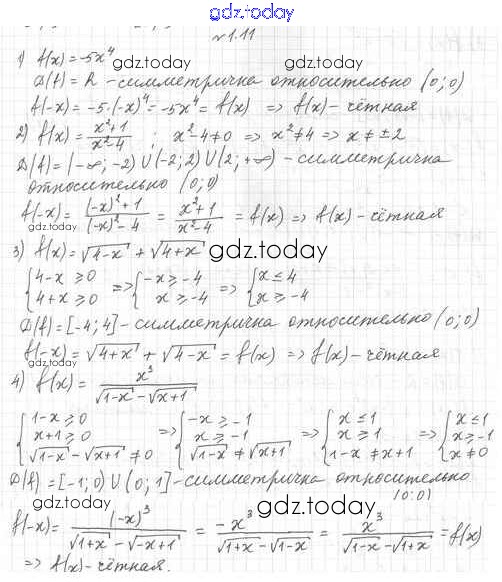 gdz.today
№1.11
1) f(x)=-5x⁴ gdz.today
D(f)=R - симметрична относительно (0;0)
f(-x)=-5·(-x)⁴=-5x⁴=f(x) => f(x)-чётная
2) f(x)=(x²+1)/(x²-4) ; x²-4≠0 => x²≠4 => x≠±2
D(f)=(-∞;-2)∪(-2;2)∪(2;+∞) - симметрична
относительно (0;0)
f(-x)=((-x)²+1)/((-x)²-4) = (x²+1)/(x²-4) = f(x) => f(x)-чётная
gdz.today
3) f(x)=√(4-x)+√(4+x) gdz.today
{4-x≥0 => {-x≥-4 => {x≤4
{4+x≥0 {x≥-4 {x≥-4
D(f)=[-4;4]-симметрична относительно (0;0)
f(-x)=√(4+x)+√(4-x)=f(x) => f(x)-чётная
gdz.today
4) f(x)= x³/(√(1-x)-√(x+1))
{1-x≥0 => {-x≥-1 => {x≤1 => {x≤1
{x+1≥0 {x≥-1 {x≥1 {x≥-1
{√(1-x)-√(x+1)≠0 {√(1-x)≠√(x+1) {1-x≠x+1 {x≠0
D(f)=[-1;0)∪(0;1]-симметрична относительно
gdz.today (0;0)
f(-x)= (-x)³/(√(1+x)-√(-x+1)) = -x³/(√(1+x)-√(1-x)) = x³/(√(1-x)-√(1+x)) =f(x)
=> f(x)-чётная.
gdz.today